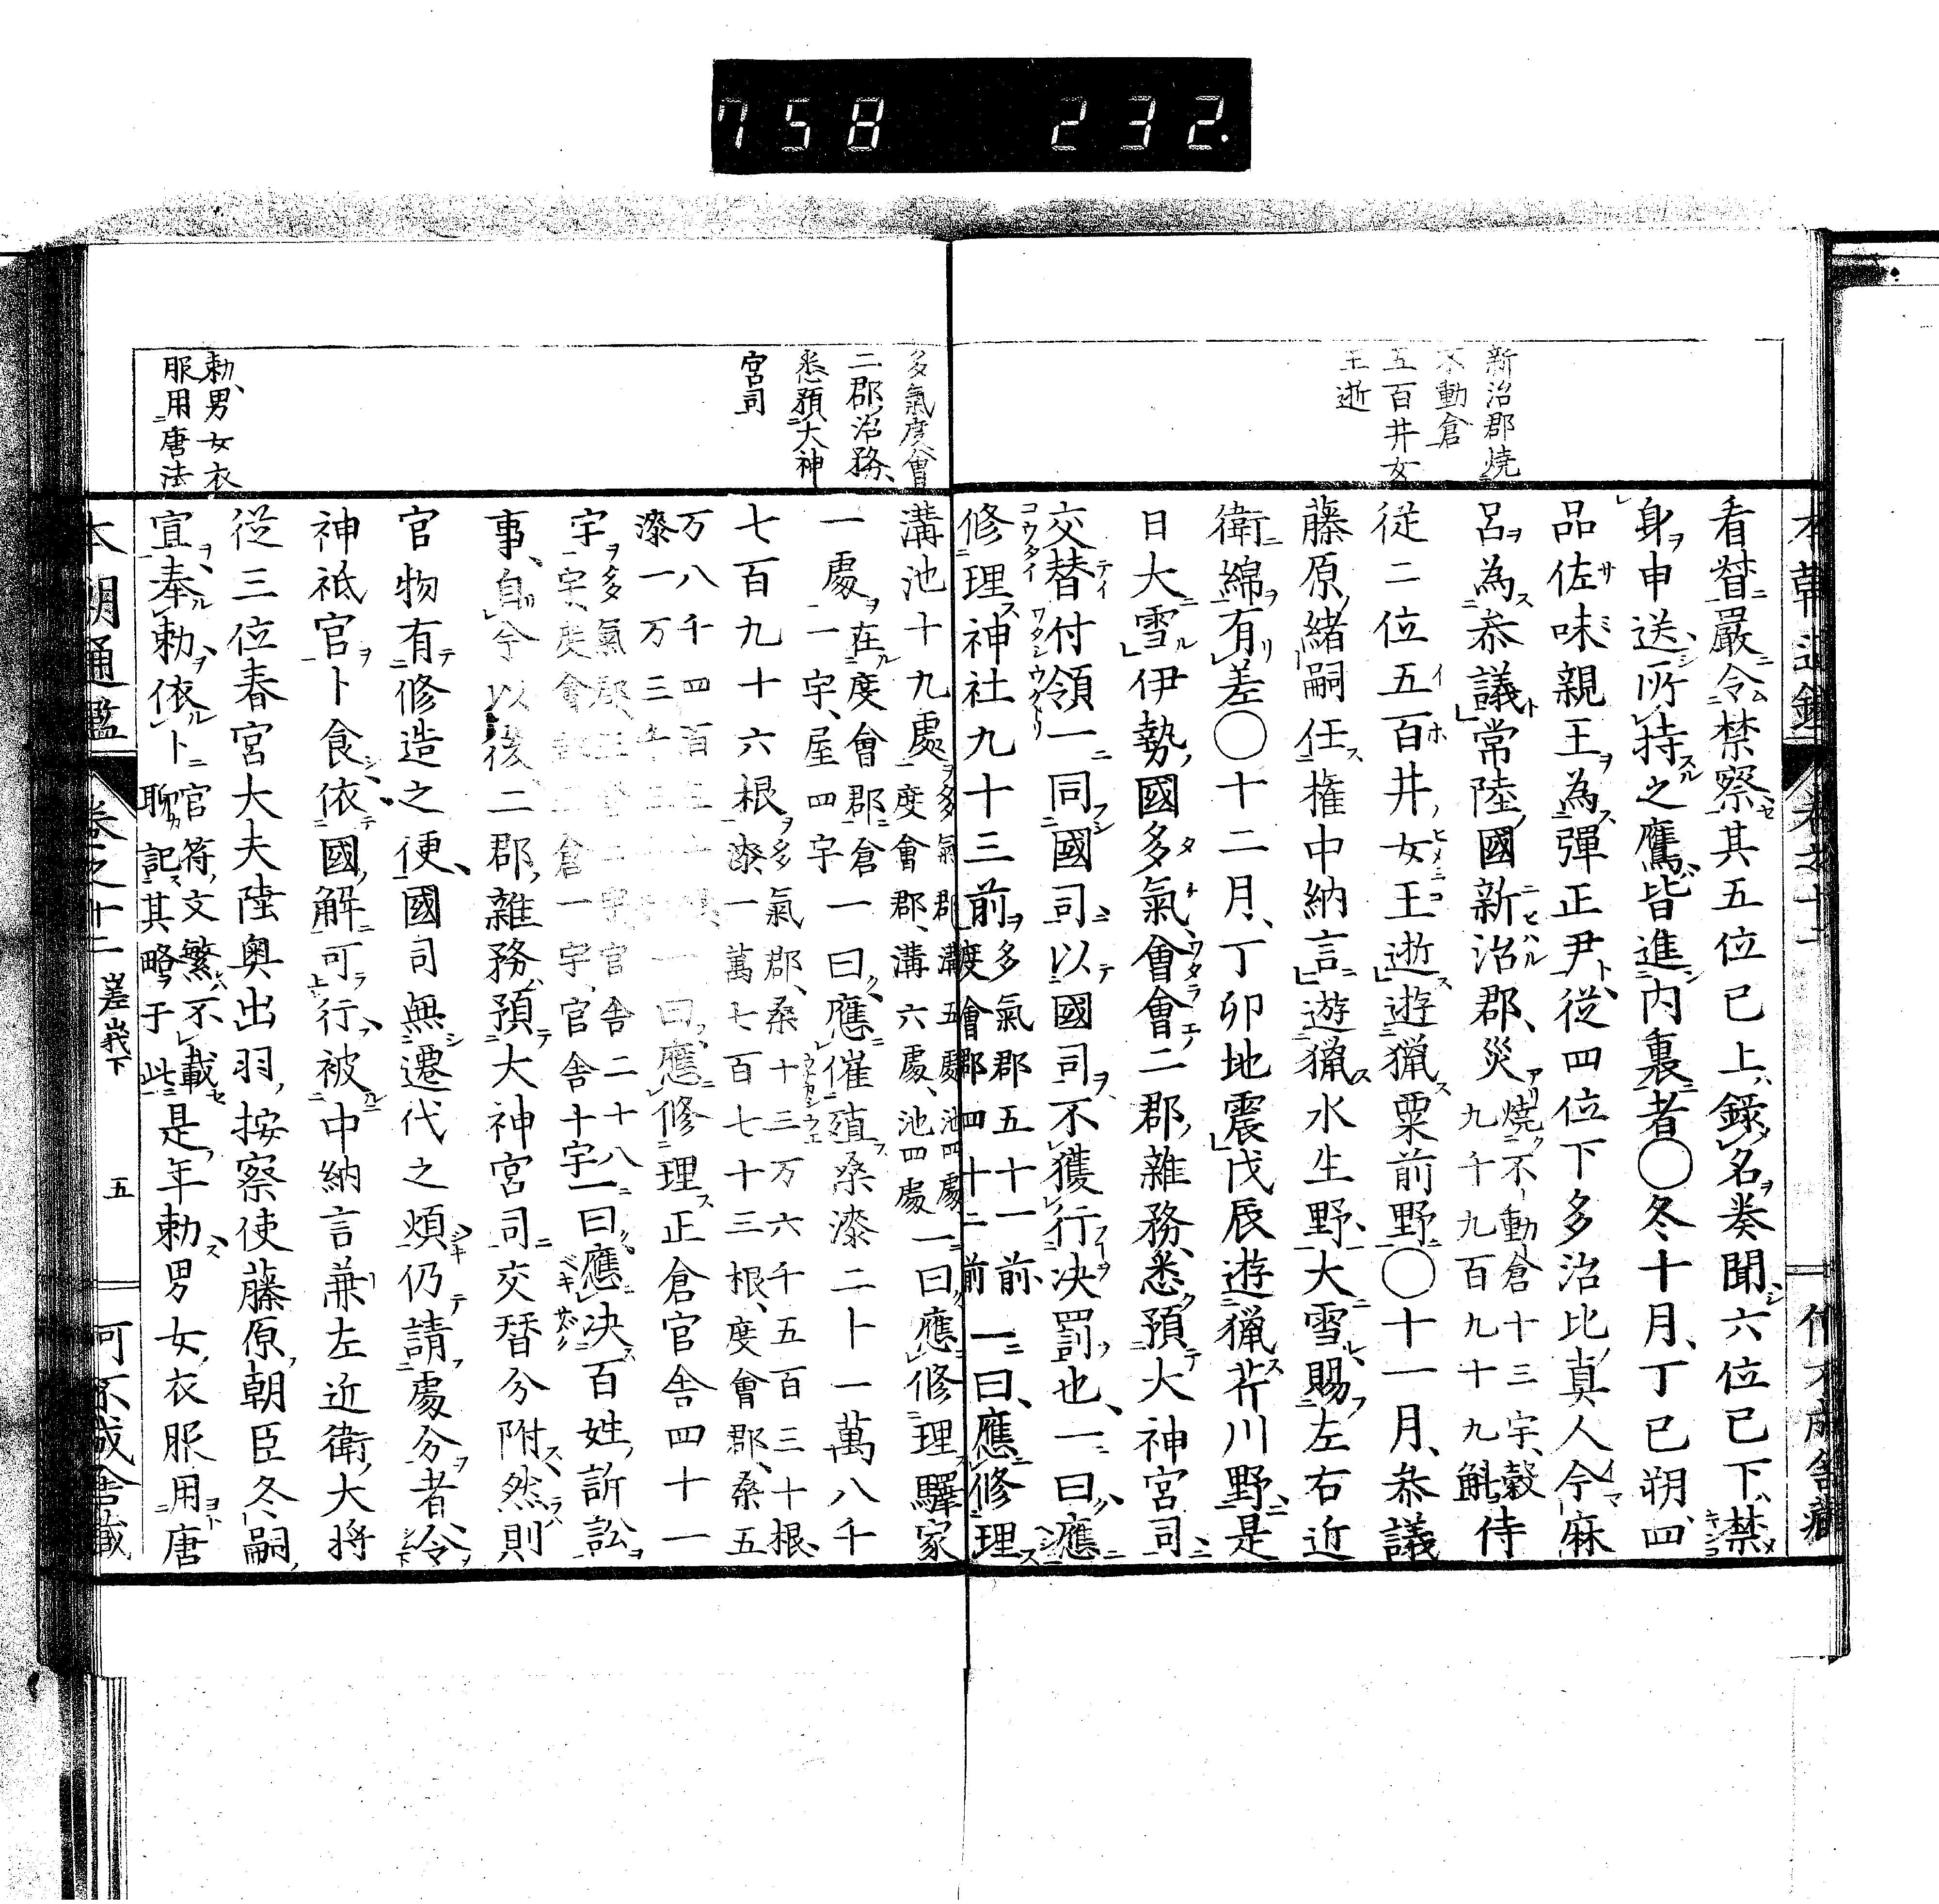 758 232.
新治郡焼
不動倉
五百井女
王逝
看督嚴令禁察其五位已上錄名奏聞六位已下禁
身申送所持之鷹皆進内裏者〇冬十月丁巳朔四
品佐味親王為彈正尹從四位下多治比真人今麻
呂為叅議常陸國新治郡災燒不動倉十三宇穀九千九百九十九斛侍
従二位五百井女王逝遊猟粟前野〇十一月叅議
藤原緒嗣任権中納言遊猟水生野大雪賜左右近
衛綿有差〇十二月丁卯地震戊辰遊猟芹川野是
日大雪伊勢國多氣會會二郡雜務悉預大神宮司
交替付領一同國司以國司不獲行决罰也一曰應
修理神社九十三前多氣郡五十一前度會郡四十二前一曰應修理
多氣度會
二郡治務
悉預大神
宮司
溝池十九處多氣郡溝五處池四處度會郡溝六處池四處一曰應修理驛家
一處在度會郡倉一宇屋四宇一曰應催殖桑漆二卜一萬八千
七百九十六根多氣郡桑十三万六千五百三十根漆一萬七百七十三根度會郡桑五
万八千四百漆一万三千一曰應修理正倉官舎四十一
宇多氣郡官舎二十八宇度會郡倉一宇官舎十宇一曰應决百姓訴訟
事自今以後二郡雜務預大神宮司交替分附然則
官物有修造之便國司無遷代之煩仍請處分者令
神祇官卜食依國解可行被中納言兼左近衛大将
從三位春宮大夫陸奥出羽按察使藤原朝臣冬嗣
宣奉勅依卜官符文繁不載聊記其略于此是年勅男女衣服用唐
勅男女衣
服用唐法
本朝通鑑 卷之十二 嵯峨下 五